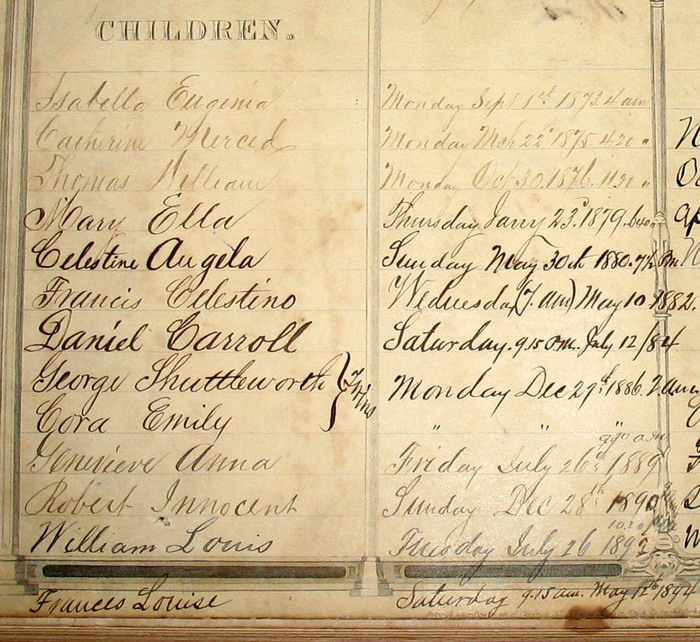 CHILDREN.
Isabella Eugenia Monday Sept 1st 1873 4 am
Catherine Merced Monday Mch 22d 1875. 420 "
Thomas William Monday Oct 30. 1876. 1120 "
Mary Ella Thursday Janry 23d 1879. 640 "
Celestine Angela Sunday May 30th 1880. 7½ Pm
Francis Celestino Wednesday (7. am) May 10 1882.
Daniel Carroll Saturday. 9.15 P.M. July 12/84
George Shuttleworth } Twins Monday Dec 27th 1886. 7. am
Cora Emily " " " a.m
Genevieve Anna Friday July 26th 1889
Robert Innocent Sunday Dec 28th 1890
William Louis Tuesday July 26 1892
Frances Louise Saturday 9.15 am. May 12th 1894